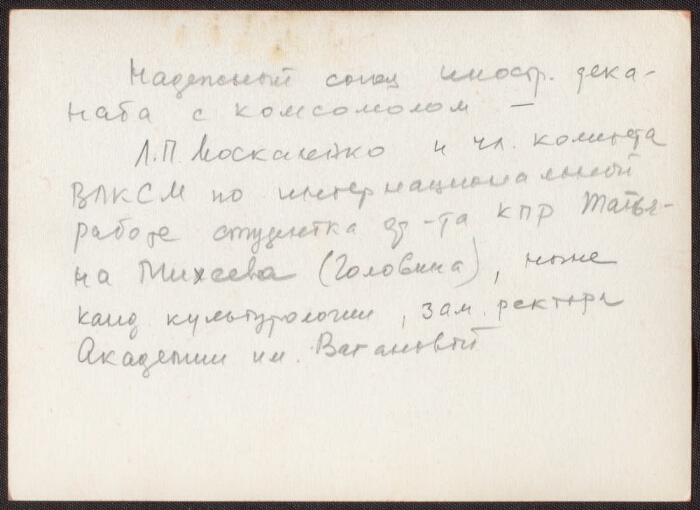 Надежный союз иностр. дека-
ната с комсомолом —
Л.П. Москаленко и чл. комитета
ВЛКСМ по интернациональной
работе студентка ф-та КПР Татья-
на Михеева (Головина), ныне
канд культурологии, зам. ректора
Академии им. Вагановой